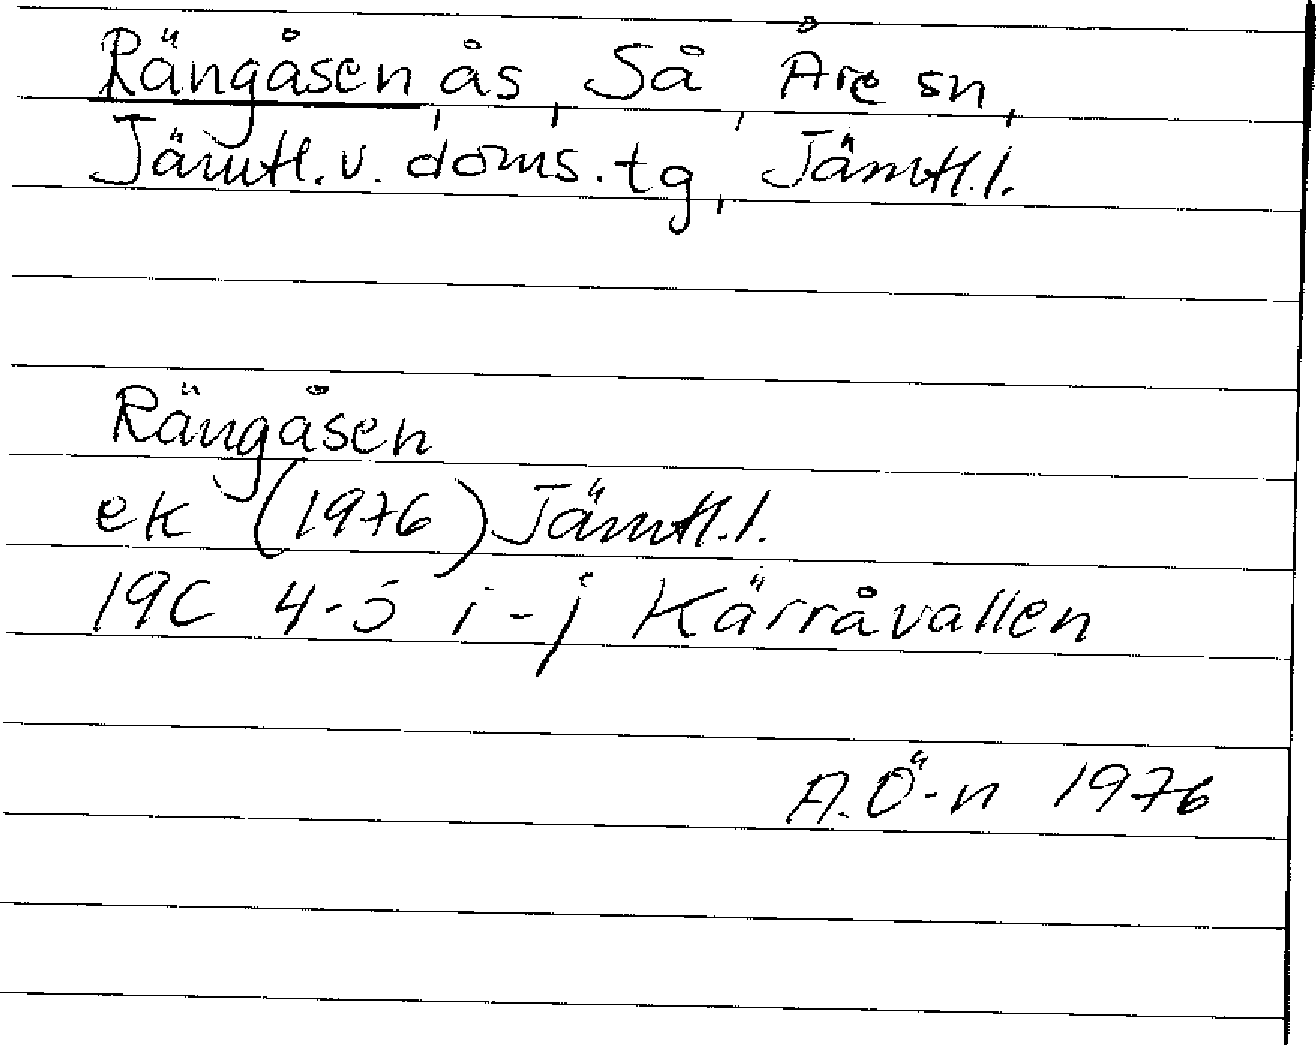 Rängåsen, ås, Så, Åre sn,
Jämtl.v. doms. tg, Jämtl.l.
Rängåsen
ek (1976) Jämtl.l.
19C 4-5 i-j Kärråvallen
A.Ö-n 1976